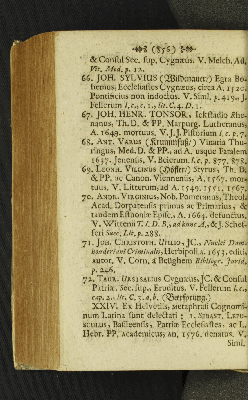 (856)
& Consul Sec. sup. Cygnæus. V. Melch. Ad.
Vit. Med. p. 12.
66. JOH. SYLVIUS (Wildenauer) Egra Bo-
hemus, Ecclesiastes Cygnæus, circa A. 1520.
Pontificius non indoctus. V. Siml. p. 419.
Fellerum l. c. c. 1. lit. C. 4. D. 1.
67. JOH. HENR. TONSOR,
nanus, Th. D. & PP. Marpurg. Lutheranus,
A. 1649. mortuus. V. J. J. Pistorium l. c. p. 7.
68. ANT. VARUS Vinaria Thu-
ringus, Med. D. & PP. ad A. usque Fatalem
1637. Jenensis. V. Beierum l. c. p. 877. 878.
69. LEONH. VILLINUS Styrus, Th. D.
& PP. ac Canon. Viennensis, A. 1567. mor-
tuus. V. Litterum, ad A. 1549. 1561. 1567.
70. ANDR. VIRGINIUS, Nob. Pomeranus, Theol.
Acad. Dorpatensis primus ac Primarius, &
tandem Esthoniæ Episc. A. 1664. defunctus.
V. Wittenii T. l. D. B., ad hunc A., & J. Schef-
feri Suec. Lit. p. 288.
71. JOH. CHRISTOPH. UHLIO, JC.,
Criminalis, Herbipoli A. 1653. editi,
autor. V. Corn. à Beughem Bibliogr. Jurid.
p. 246.
72. URSISALIUS Cygnæus, JC. & Consul
Patriæ, Sec. sup., Eruditus. V. Fellerum l. c.,
cap. 2. lit. C. 2. a. b.
XXIV. Ex Helvetiis, metaphrasi Cognomi-
num Latina sunt delectati : 1. SEBAST.
Basileensis, Patriæ Ecclesiastes. ac L.
Hebr. PP. Academicus, An. 1576. denatus. V.
Siml.